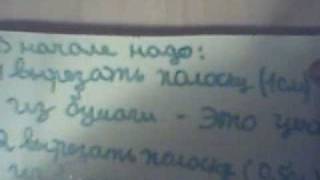 В начале надо:
1 вырезать полоску (1см)
из бумаги - это
2 вырезать полоску (0,5см)
из